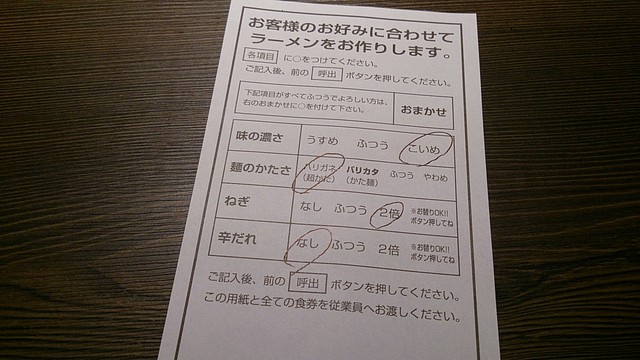 お客様のお好みに合わせて
ラーメンをお作りします。
各項目 に○をつけてください。
ご記入後、前の 呼出 ボタンを押してください。
下記項目がすべてふつうでよろしい方は、
右のおまかせに○を付けて下さい。
おまかせ
味の濃さ うすめ ふつう こいめ
麺のかたさ ハリガネ バリカタ ふつう やわめ
(超かた) (かた麺)
ねぎ なし ふつう 2倍 ※お替りOK!!
ボタン押してね
辛だれ なし ふつう 2倍 ※お替りOK!!
ボタン押してね
ご記入後、前の 呼出 ボタンを押してください。
この用紙と全ての食券を従業員へお渡しください。